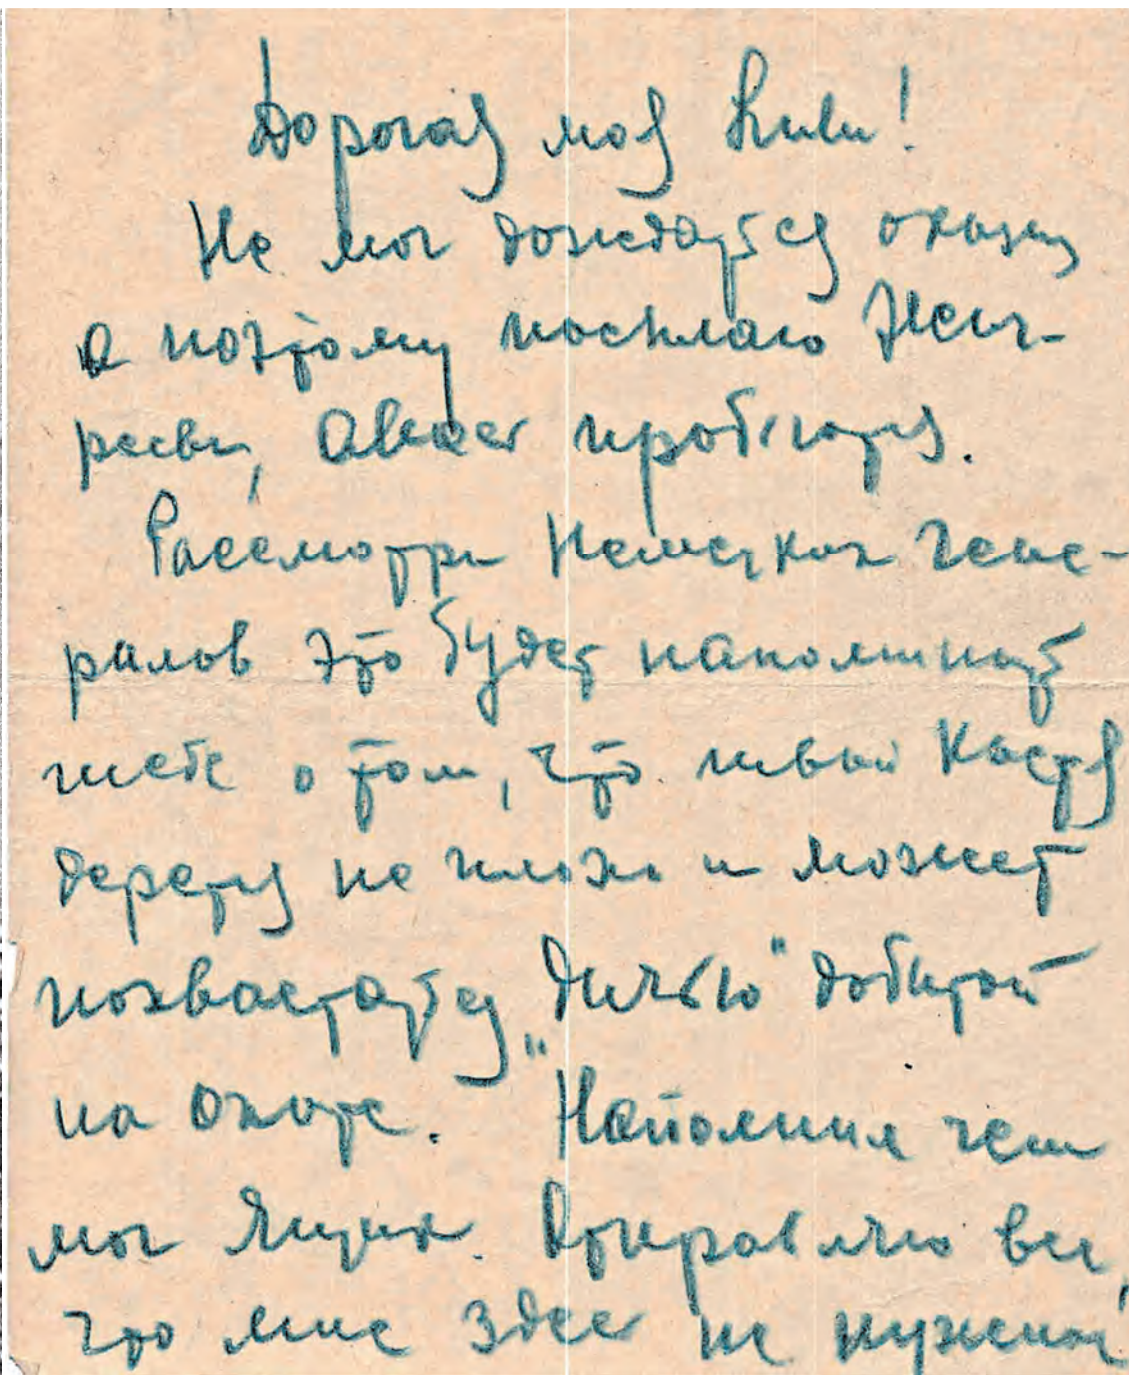 Дорогая моя Лили!
Не мог дождаться оказии
а поэтому посылаю
авось пробьются.
Рассмотри немецких гене-
ралов это будет напоминать
тебе о том, что твой Костя
дерется не плохо и может
похвастаться „дичью" добытой
на охоте. Наполнил чем
мог ящик. Отправляю вещи,
что мне здесь не нужны